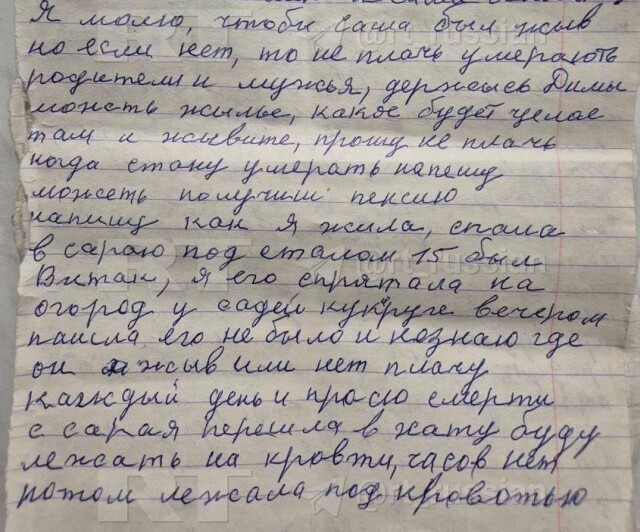 Я молю, чтобы Саша был жыв
но если нет, то не плачь умерають
родители и мужья, держысь Димы
можеть жылье, какое будет целае
там и жывите, прошу не плачь
когда стану умерать напешу
можеть получиш пенсию
напишу как я жила, спала
в сараю под сталом 15 был
Витак, я его спрятала на
огород у садей кукруге вечером
пашла его не было и незнаю где
он жыв или нет плачу
каждый день и прасю смерти
с сарая перешла в хату буду
лежать на кровти, часов нет
потом лежала под кровотью
RT
@rt_russian
@rt_russian
RT
@rt_russian